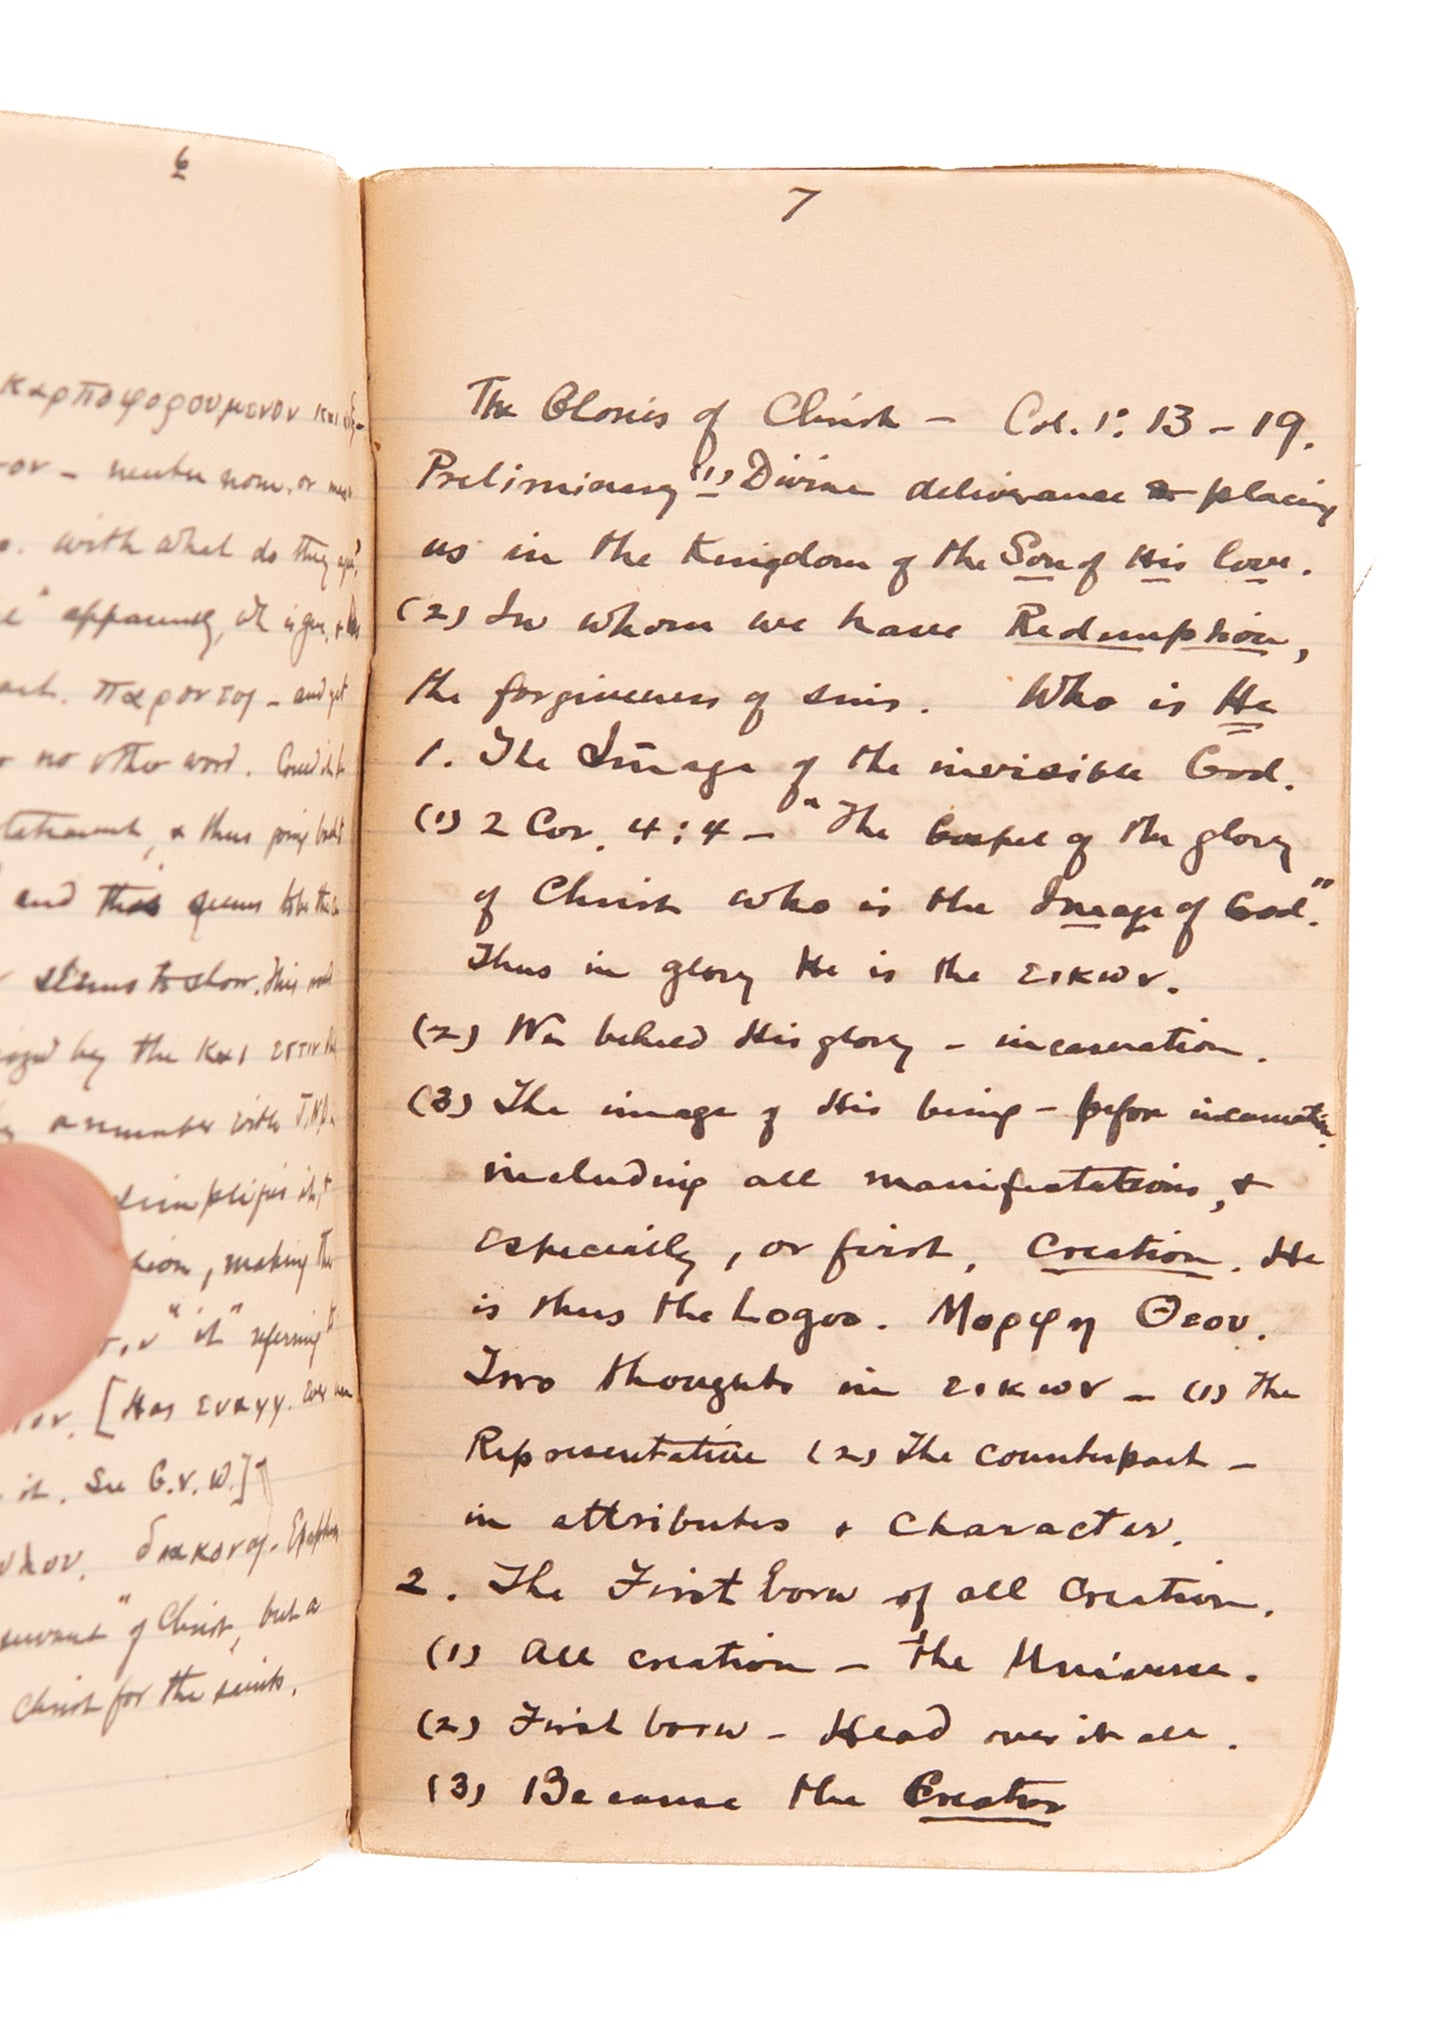 6
καρποφορουμενον και
-ον - neuter nom. or
with what do they
apparently, it
παροντος - and yet
no other word. Could it
statement, & thus going
and this seems to be the
seems to show. This
by the και εστιν
a number with T.N.
simplifies it, &
making the
"it" referring to
[Has ευαγγ. ever
it. See G.V.W.]
διακονος - Epaphras
servant" of Christ, but a
Christ for the saints.
7
The Glories of Christ - Col. 1: 13 - 19.
Preliminary (1) Divine deliverance placing
us in the Kingdom of the Son of His love.
(2) In whom we have Redemption,
the forgiveness of sins. Who is He
1. The Image of the invisible God.
(1) 2 Cor. 4:4 - "The Gospel of the glory
of Christ who is the Image of God".
Thus in glory He is the εικων.
(2) We beheld His glory - incarnation.
(3) The image of His being - before incarnation.
including all manifestations, &
especially, or first, Creation. He
is thus the Logos. Μορφη Θεου.
Two thoughts in εικων - (1) The
Representative (2) The counterpart -
in attributes & character.
2. The First born of all Creation.
(1) All creation - the Universe.
(2) First born - Head over it all.
(3) Because the Creator